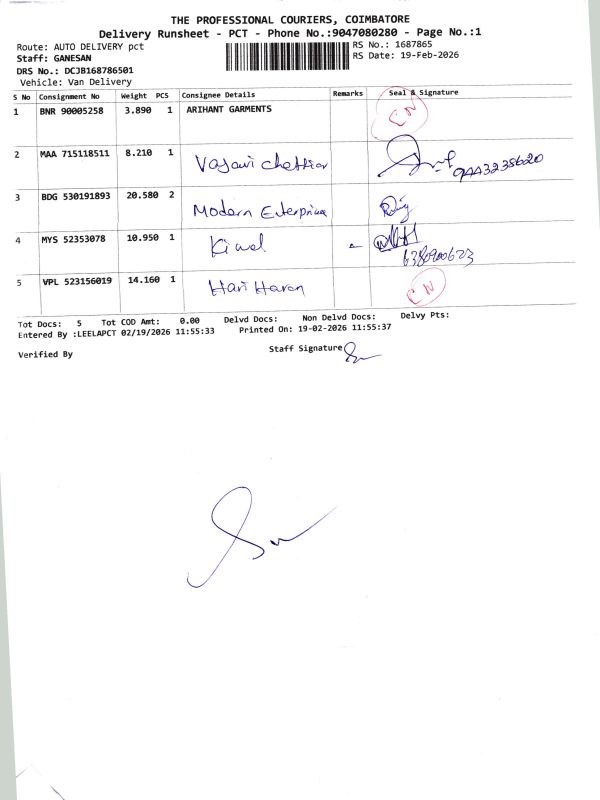 THE PROFESSIONAL COURIERS, COIMBATORE
Delivery Runsheet - PCT - Phone No.:9047080280 - Page No.:1
Route: AUTO DELIVERY pct
RS No.: 1687865
Staff: GANESAN
RS Date: 19-Feb-2026
DRS No.: DCJB168786501
Vehicle: Van Delivery
S No Consignment No Weight PCS Consignee Details Remarks Seal & Signature
1 BNR 90005258 3.890 1 ARIHANT GARMENTS CN
2 MAA 715118511 8.210 1 Vasavi Chettiar
3 BDG 530191893 20.580 2 Modern Enterprises
4 MYS 52353078 10.950 1 -
6380900623
5 VPL 523156019 14.160 1 Hari Haran CN
Tot Docs: 5 Tot COD Amt: 0.00 Delvd Docs: Non Delvd Docs: Delvy Pts:
Entered By :LEELAPCT 02/19/2026 11:55:33 Printed On: 19-02-2026 11:55:37
Verified By Staff Signature